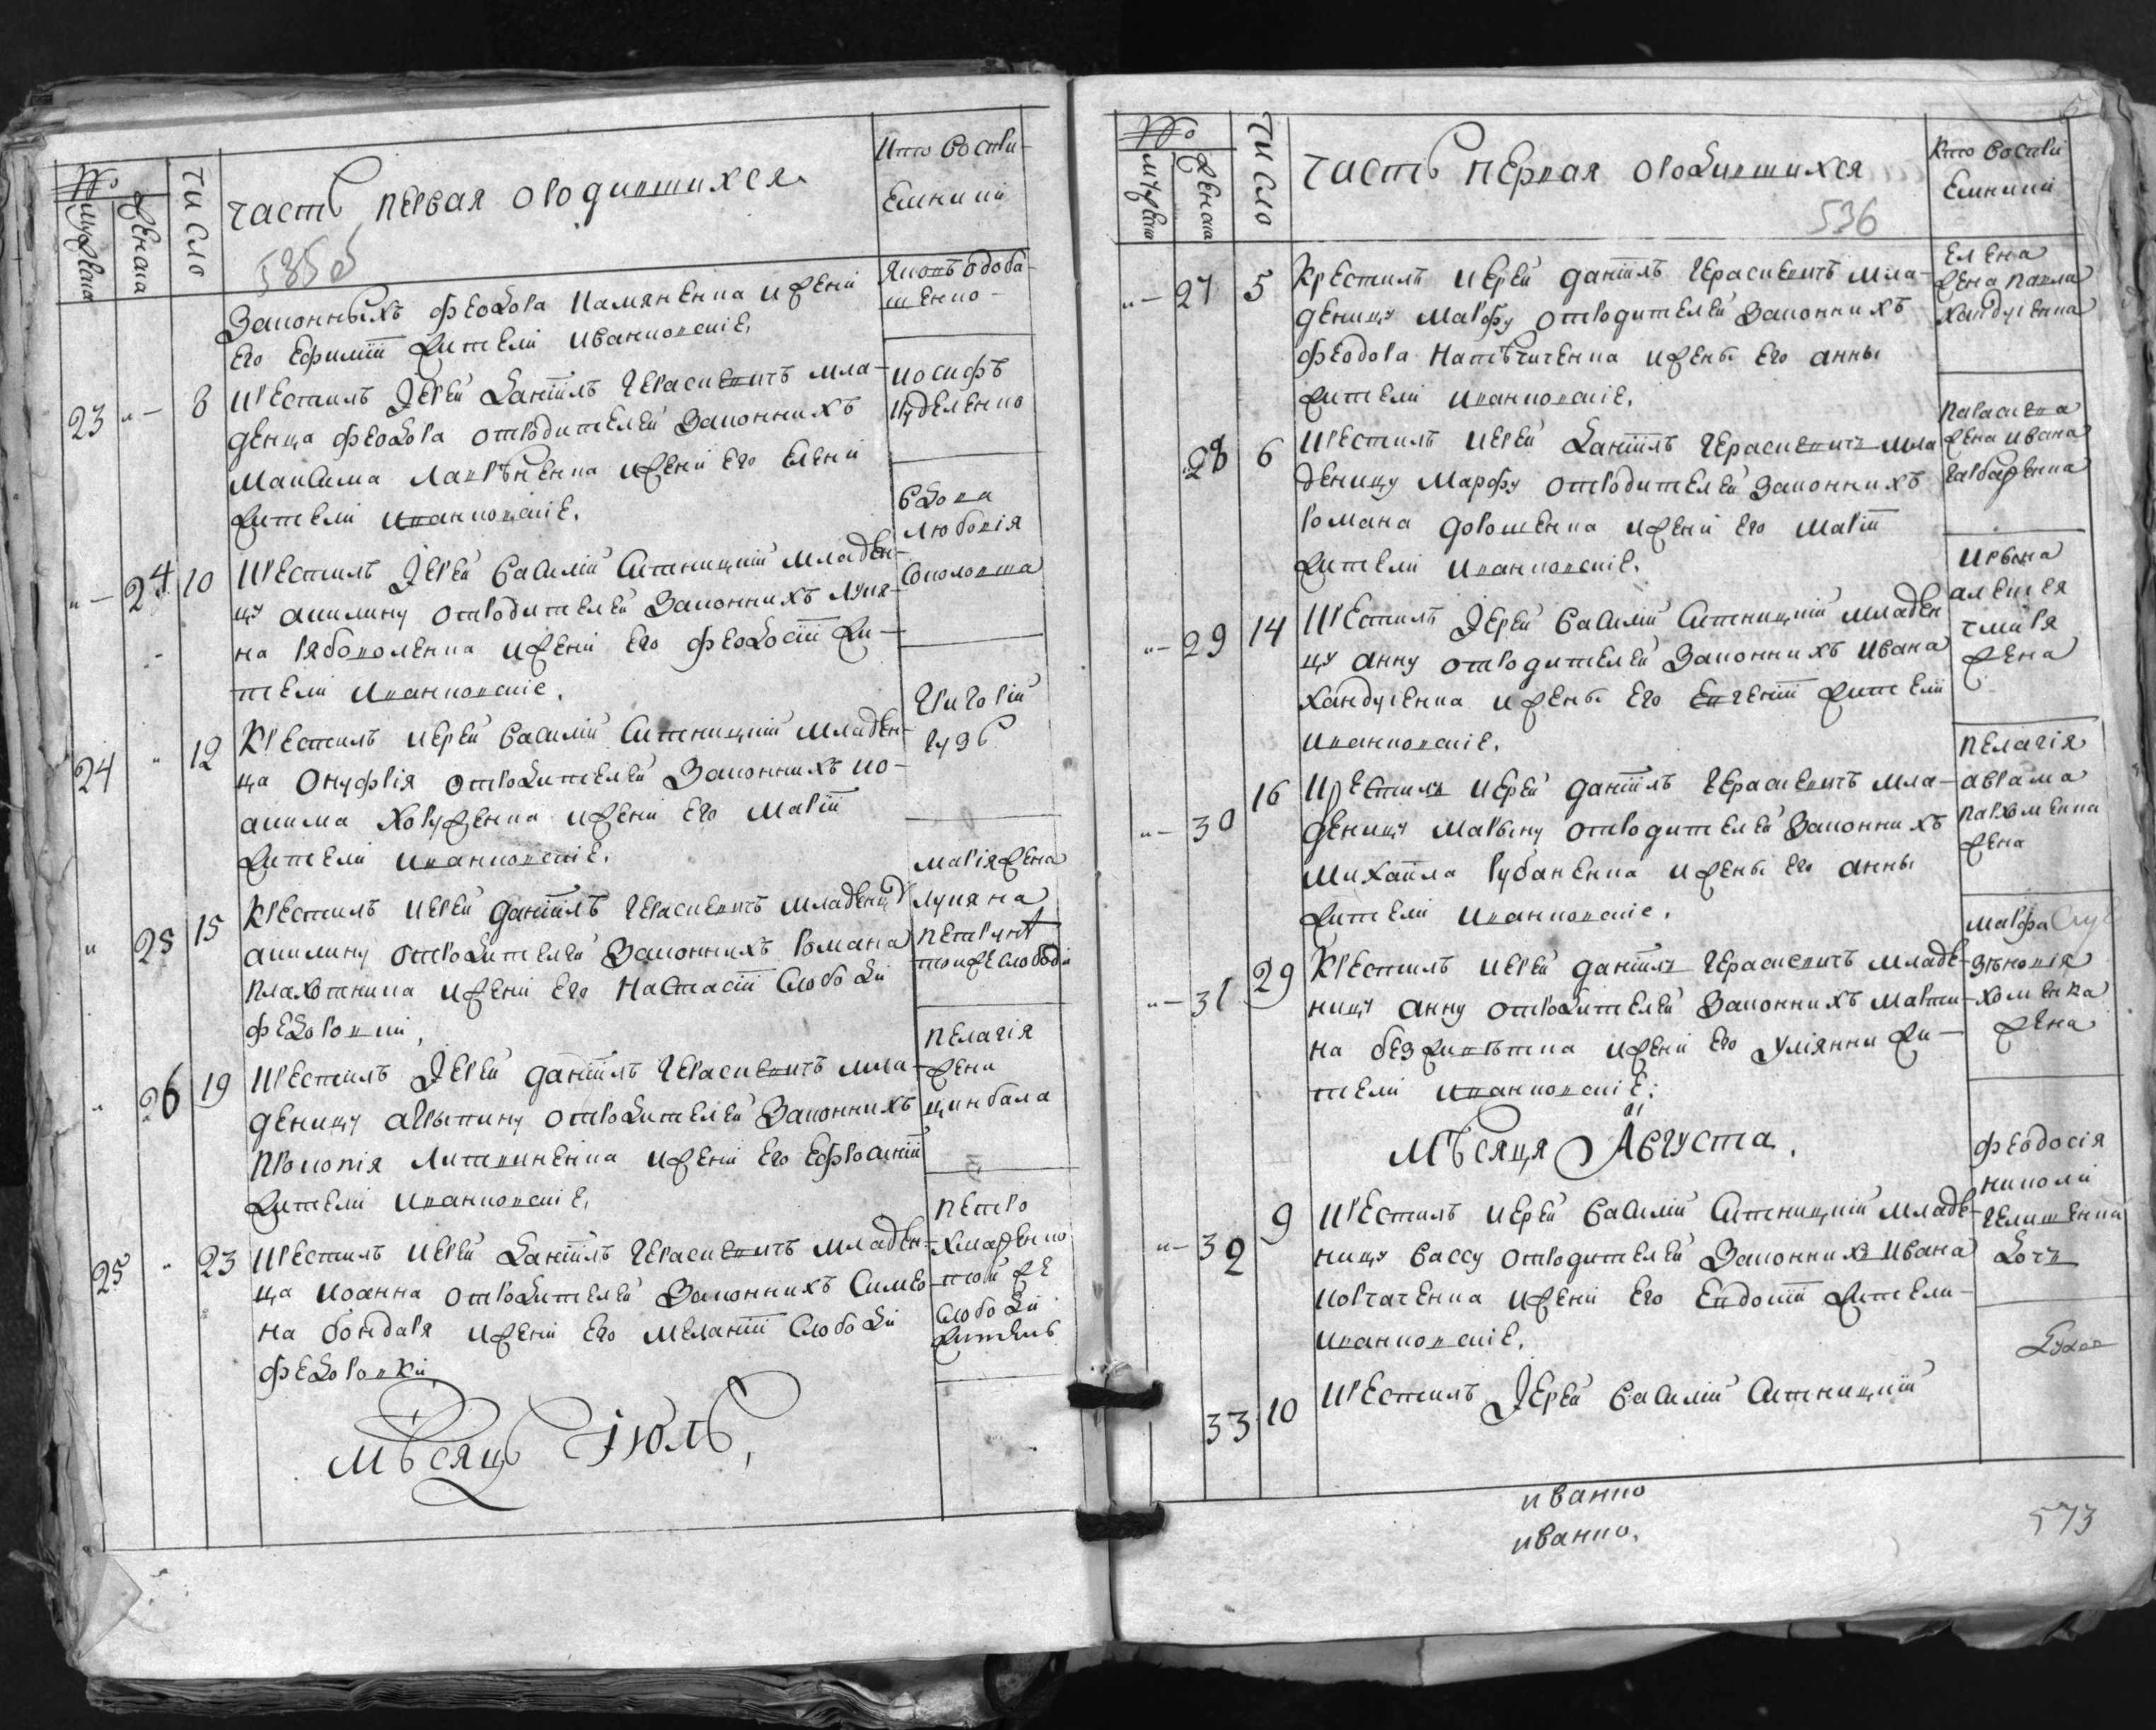 №
Мужеска
Женска
Число
Часть первая о родившихся
Кто воспри-
емники
535 об
законныхъ Феодора Каменѣнка и жени
его Ефимїи жители Иванковскіе.
Яковъ Одоба-
шенко
23 " 8 Крестилъ Іерей Данїилъ Герасиевичъ мла-
денца Феодора отъ родителей законнихъ
Максима Лавренѣнка и жени его Елени
жители Иванковскіе.
Иосифъ
Куделенко
" 24 10 Крестилъ Іерей Василій Ситницкій младен-
цу Акилину отъ родителей законнихъ Лукя-
на Рябоволенка и жени его Феодосїи жи-
тели Иванковскіе.
Вдова
Любовія
Соколовша
24 " 12 Крестилъ Иерей Василій Ситницкій младен-
ца Онуфрія отъ родителей законнихъ Ио-
акима Хоруженка и жени его Марїи
жители Иванковскіе.
Григорій
Гузь
" 25 15 Крестилъ Иерей Данїилъ Герасиевичъ младенцу
Акилину отъ родителей законнихъ Романа
Плахотника и жени его Настасїи слободи
Федоровки,
Марія жена
Лукяна
той же слободи
" 26 19 Крестилъ Іерей Данїилъ Герасиевичъ мла-
деницу Агрыпину отъ родителей законнихъ
Прокопія Литвиненка и жени его Ефросинїи
жители Иванковскіе,
Пелагія
жена
Цинбала
25 " 23 Крестилъ Иерей Данїилъ Герасиевичъ младен-
ца Иоанна отъ родителей законнихъ Симео-
на Бондаря и жени его Меланїи слободи
Федоровки,
Петро
Хмаренко
той же
слободи
житель
Мѣсяць Іюль,
№
Мужеска
Женска
Число
Часть первая о родившихся
Кто воспри
емники
536
" 27 5 Крестилъ Иерей Данїилъ Герасиевичъ мла-
деницу Марфу отъ родителей законнихъ
Феодора Нападѣченка и жены его Анны
жители Иванковскіе.
Елена
жена Павла
Хандуренка
28 6 Крестилъ Иерей Данїилъ Герасиевичъ мла
деницу Марфу отъ родителей законнихъ
Романа Дорошенка и жени его Марїи
жители Иванковскіе.
Параскева
жена Ивана
Гарбаренка
" 29 14 Крестилъ Іерей Василій Ситницкій младен
цу Анну отъ родителей законнихъ Ивана
Хандуренка и жены его Евгенїи жители
Иванковскіе.
Алексея
жена
" 30 16 Крестилъ Иерей Данїилъ Герасиевичъ мла-
деницу Марыну отъ родителей законнихъ
Михаила Рубаненка и жены его Анны
жители Иванковскіе.
Пелагія
Аврама
Пархоменка
жена
" 31 29 Крестилъ Иерей Данїилъ Герасиевичъ младе-
ницу Анну отъ родителей законнихъ Марти-
на и жени его Улїянни жи-
тели Иванковскіе:
Марфа
Зѣновія
Хоменка
жена
Мѣсяця Августа.
" 32 9 Крестилъ Иерей Василій Ситницкій младе-
ницу Вассу отъ родителей законнихъ Ивана
Корчаченка и жени его Евдокїи жители
Иванковскіе.
Феодосія
Николи
дочь
33 10 Крестилъ Іерей Василій Ситницкій
иванко
иванко.
573